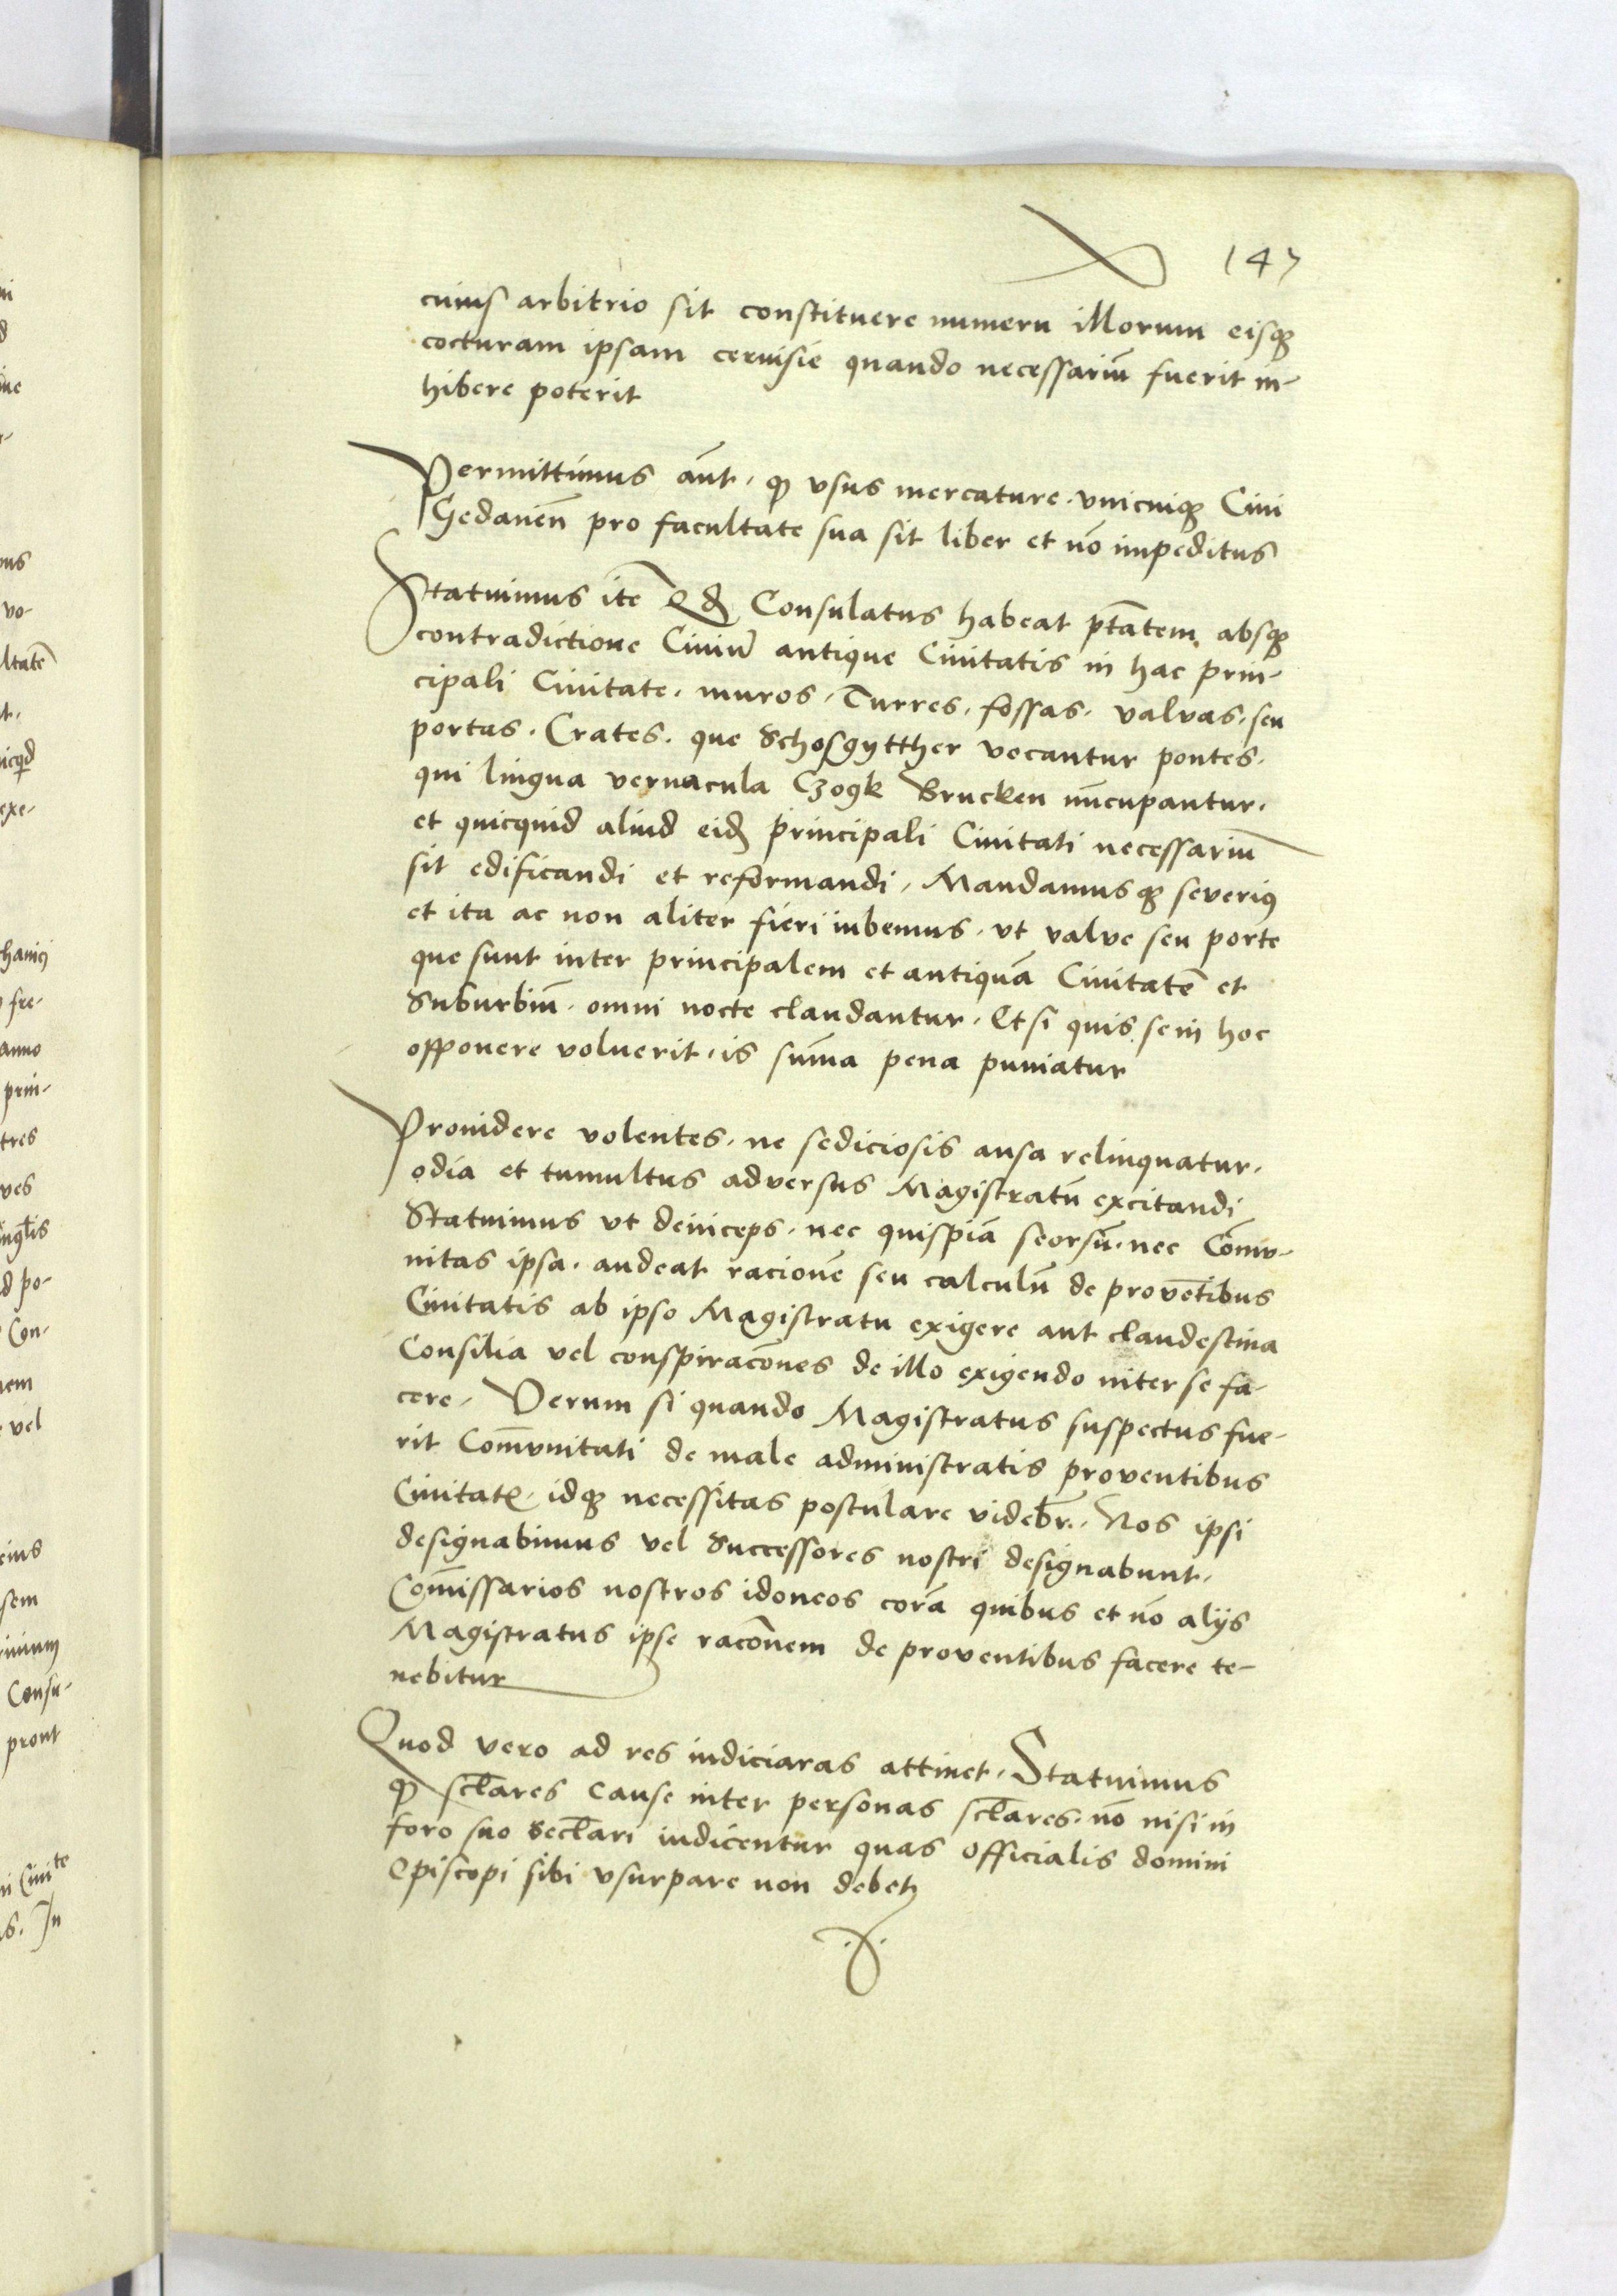 147
cuius arbitrio sit constituere numeru illorum eisqȝ
cocturam ipsam ceruisie quando necessariū fuerit in-
hibere poterit
Permittimus aūt. qꝫ vsus mercature. vnicuiqȝ Ciui
Gedaneñ pro facultate sua sit liber et nō impeditus
Statuimus itē Qd Consulatus habeat ptātem absqȝ
contradictione Ciuiū antique Ciuitatis in hac prin-
cipali Ciuitate. muros. Turres. fossas. valvas. seu
portas. Crates. que Schosgytther vocantur pontes.
qui lingua vernacula Czogk Brucken nūcupantur.
et quicquid aliud eidꝫ principali Ciuitati necessariū
sit edificandi et reformandi. Mandamusqȝ severiꝰ
et ita ac non aliter fieri iubemus. vt valve seu porte
que sunt inter principalem et antiquā Ciuitatē et
Suburbiū. omni nocte claudantur. Et si quis se in hoc
opponere voluerit. is sūma pena puniatur
Prouidere volentes. ne sediciosis ansa relinquatur.
odia et tumultus adversus Magistratū excitandi
Statuimus vt deinceps. nec quispiā seorsū. nec Comu-
nitas ipsa. audeat racionē seu calculū de provētibus
Ciuitatis ab ipso Magistratu exigere aut clandestina
Consilia vel conspiracōnes de illo exigendo inter se fa-
cere. Verum si quando Magistratus suspectus fue-
rit Com̄vnitati de male administratis proventibus
Ciuitatꝭ. idqȝ necessitas postulare videbr̄. Nos ipsi
designabimus vel Successores nostri designabunt.
Com̄issarios nostros idoneos corā quibus et nō alijs
Magistratus ipse racōnem de proventibus facere te-
nebitur
Quod vero ad res iudiciaras attinet. Statuimus
qꝫ scl̄ares cause inter personas scl̄ares. nō nisi in
foro suo Secl̄ari iudicentur quas Officialis domini
Episcopi sibi vsurpare non debetȝ